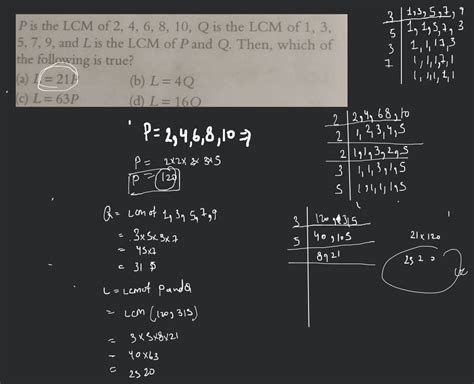 P is the LCM of 2, 4, 6, 8, 10, Q is the LCM of 1, 3,
5, 7, 9, and L is the LCM of P and Q. Then, which of
the following is true?
(a) L = 21P (b) L = 4Q
(c) L = 63P (d) L = 16Q
P = 2,4,6,8,10 ⇒
P = 2×2×2×3×5
P = 120
Q = LCM of 1,3,5,7,9
= 3×5×3×7
= 45×7
= 315
L = LCM of P and Q
= LCM (120,315)
= 3×5×8×21
= 40×63
= 2520
3 | 1,3,5,7,9
5 | 1,1,5,7,3
3 | 1,1,1,7,3
7 | 1,1,1,7,1
1,1,1,1,1
2 | 2,4,6,8,10
2 | 1,2,3,4,5
2 | 1,1,3,2,5
3 | 1,1,3,1,5
5 | 1,1,1,1,5
3 | 120,315
5 | 40,105
8,21
21×120
2520